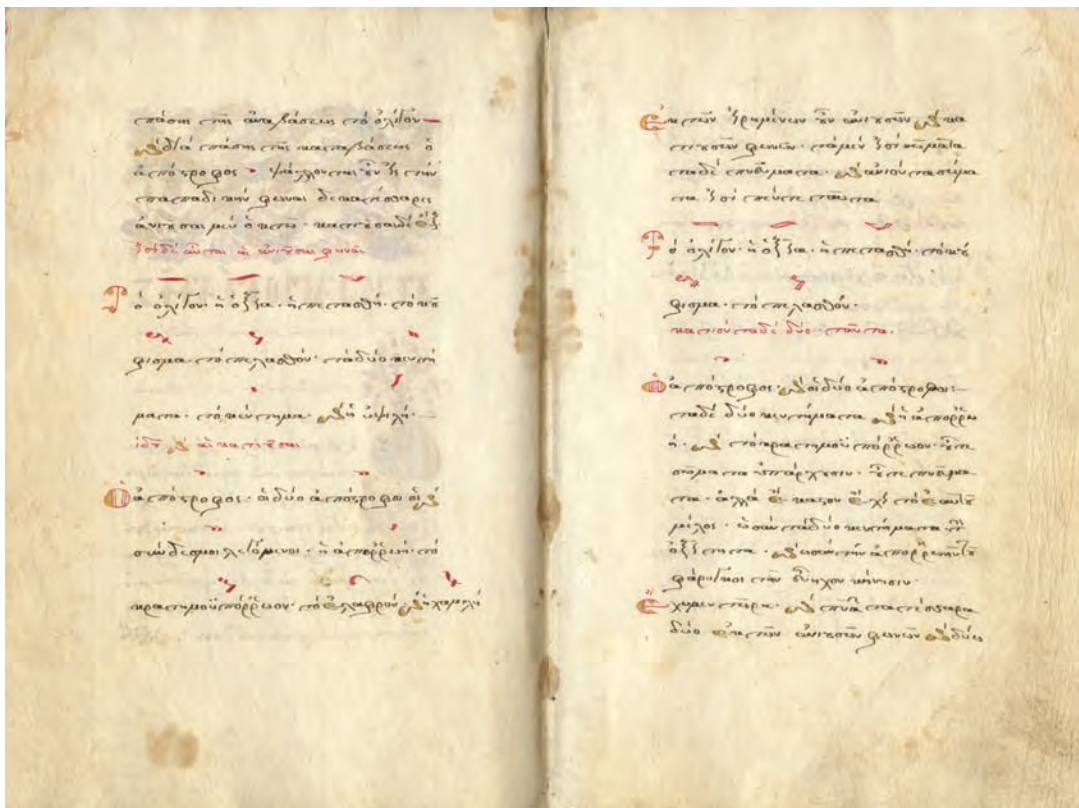 πάσης τῆς ἀναβάσεως τὸ ὀλίγον
καὶ διὰ πάσης τῆς καταβάσεως ὁ
ἀπόστροφος · ψάλλονται οὖν εἰς τὴν
παπαδικὴν φωναὶ δεκατέσσαρες
ἀνιοῦσαι μὲν ὀκτώ · κατιοῦσαι δὲ ἕξ
Εἰσὶ δὲ αὗται αἱ ἀνιοῦσαι φωναί
Τὸ ὀλίγον · ἡ ὀξεῖα · ἡ πεταστή · τὸ κού
φισμα · τὸ πελασθόν · τὰ δύο κεντή
ματα · τὸ κέντημα καὶ ἡ ὑψηλή ·
καὶ αἱ κατιοῦσαι
Ὁ ἀπόστροφος · οἱ δύο ἀπόστροφοι οἱ καὶ
σύνδεσμοι λεγόμενοι · ἡ ἀπορροή · τὸ
κρατημοϋπόρροον · τὸ ἐλαφρόν · καὶ ἡ χαμηλή
Ἐκ τῶν εἰρημένων οὖν ἀνιουσῶν καὶ κα
τιουσῶν φωνῶν · τὰ μέν εἰσι σώματα
τὰ δὲ πνεύματα · καὶ ἀνιόντα σώμα
τα εἰσὶ πέντε ταῦτα
Τὸ ὀλίγον · ἡ ὀξεῖα · ἡ πεταστή · τὸ κού
φισμα · τὸ πελασθόν ·
κατιόντα δὲ δύο · ταῦτα .
Ὁ ἀπόστροφος · καὶ οἱ δύο ἀπόστροφοι :-
τὰ δὲ δύο κεντήματα καὶ ἡ ἀπορρω
ή · καὶ τὸ κρατημοϋπόρρωον · οὔτε
σώματα ὑπάρχουσιν · οὔτε πνεύμα
τα · ἀλλὰ ἕκαστον ἔχει τὸ ἑαυτοῦ
μέλος · ὡσὰν τὰ δύο κεντήματα τὴν
ὀξύτητα · καὶ ὡσὰν τὴν ἀπορρωὴν τοῦ
φάρυγγος τὴν εὔηχον κίνησιν ·
Ἔχομεν τώρα · καὶ πνεύματα τέσσαρα
δύο ἐκ τῶν ἀνιουσῶν φωνῶν καὶ δύω